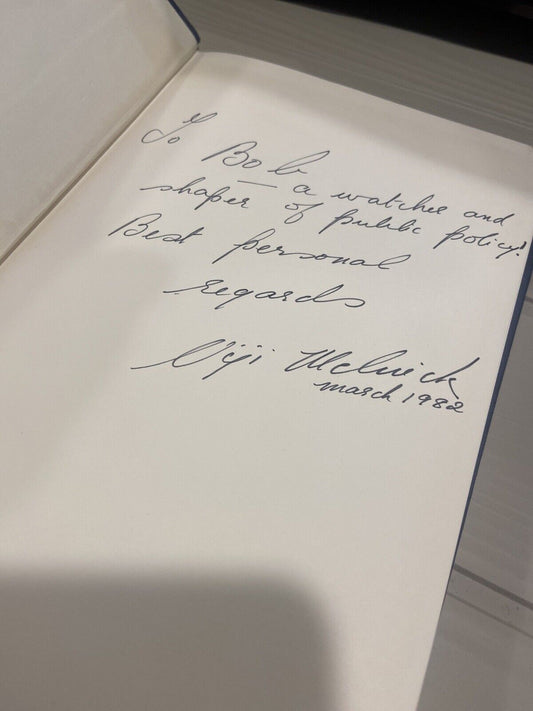 To Bob
— a watcher and
shaper of public policy!
Best personal
regards
Vijii Melnick
March 1982